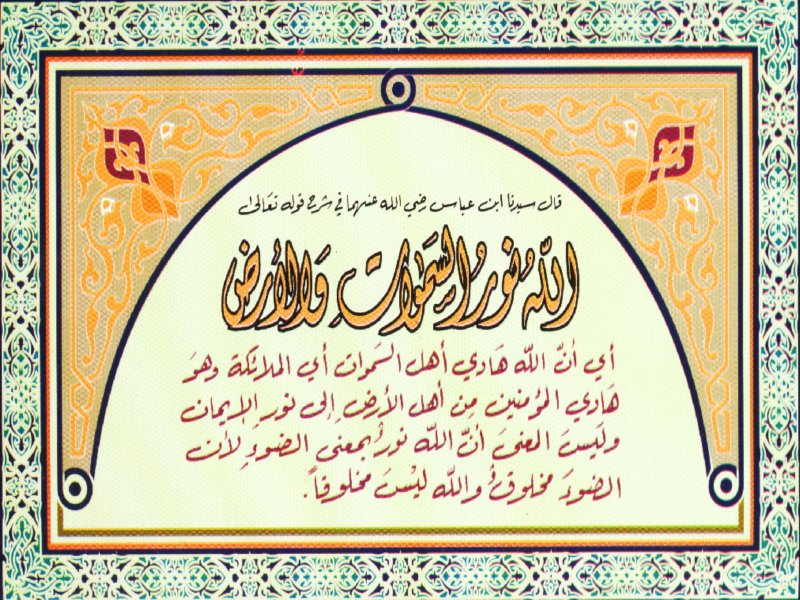 قال سيدنا ابن عباس رضي الله عنهما في شرح قوله تعالى
الله نُورُ السَّمٰوَاتِ وَالأَرضِ
أي أنّ الله هَادي أهل السَموات أي الملائكة وهوَ
هَادي المؤمنين مِن أهل الأرضِ إلى نور الإيمان
وليسَ المعنىَ أنّ الله نورٌ بمعنى الضوءِ لأن
الضوءَ مخلوقٌ والله ليْسَ مخلوقاً.